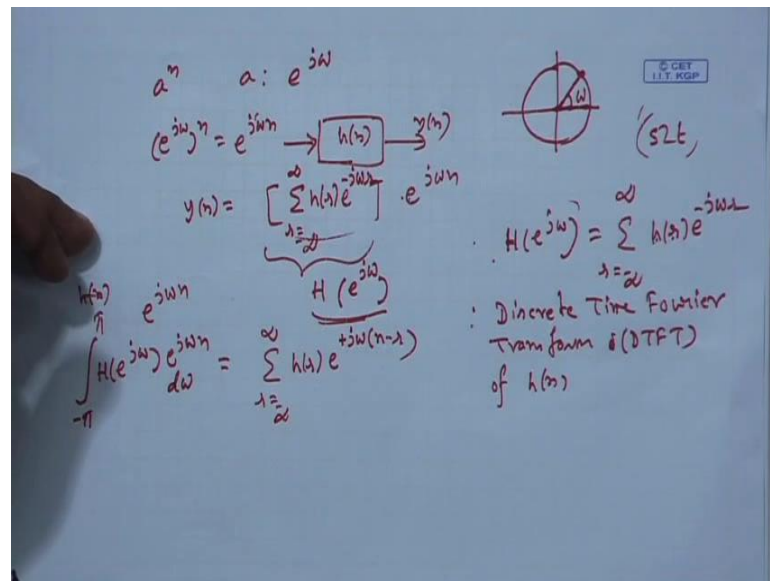 a^n a : e^{jω}
© CET
I.I.T. KGP
(e^{jω})^n = e^{jωn} → h(n) → y(n)
ω
(Ωt,
y(n) = [ ∑_{r=-∞}^{∞} h(r) e^{-jωr} ] . e^{jωn}
H(e^{jω})
: H(e^{jω}) = ∑_{r=-∞}^{∞} h(r) e^{-jωr}
: Discrete Time Fourier
Transform (DTFT)
of h(n)
h(n) e^{jωn}
∫_{-π}^{π} H(e^{jω}) e^{jωn} dω = ∑_{r=-∞}^{∞} h(r) e^{+jω(n-r)}